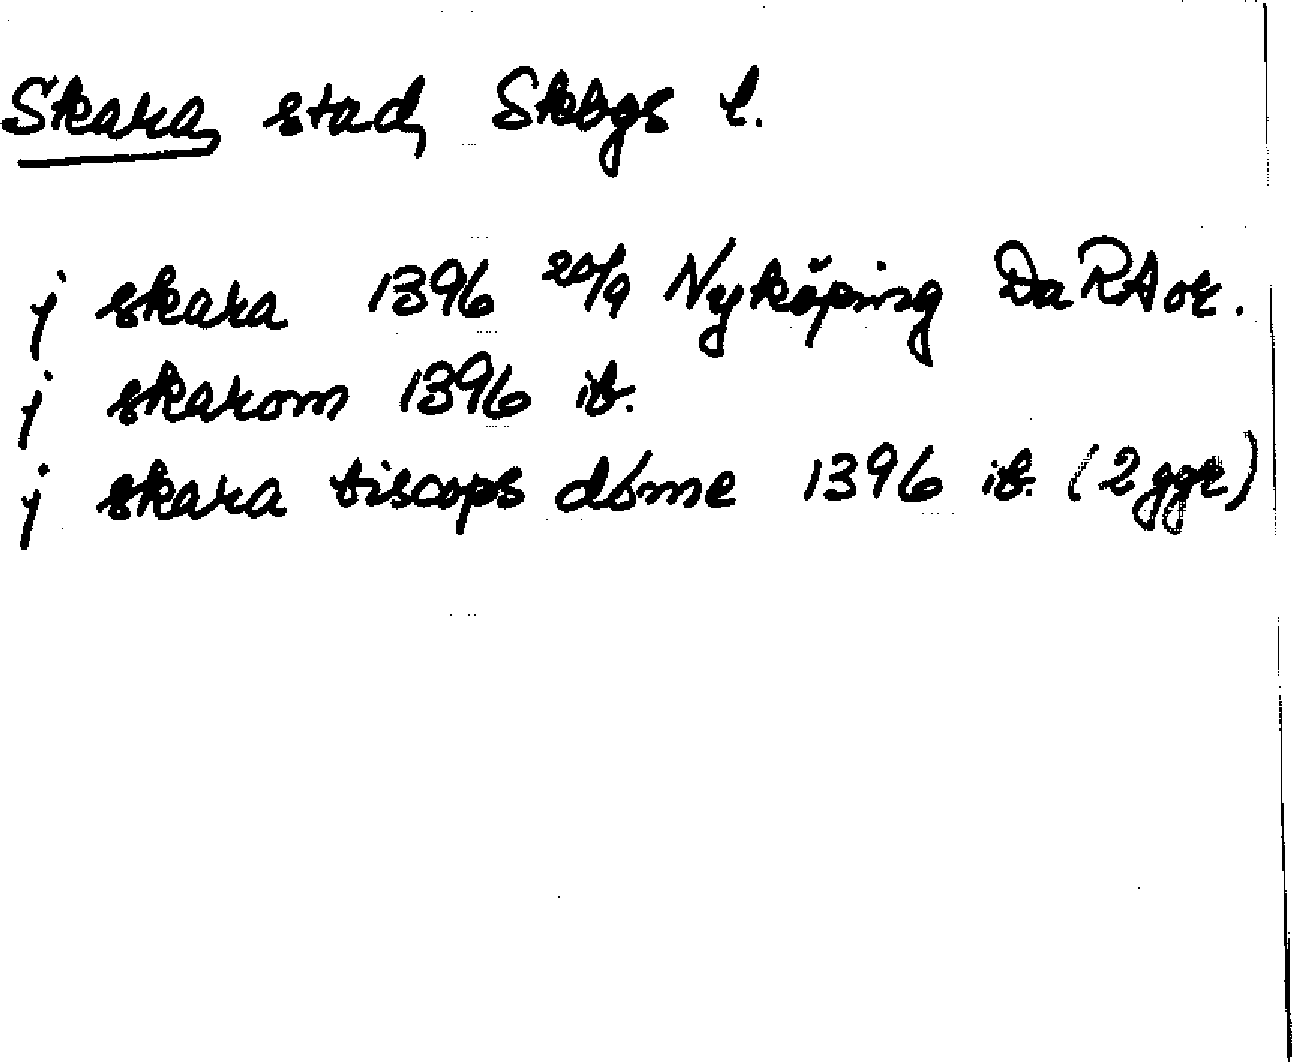 Skara, stad, Skbgs l.
j skara 1396 20/9 Nyköping DaRA or.
j skarom 1396 ib.
j skara biscops dóme 1396 ib. (2 ggr)